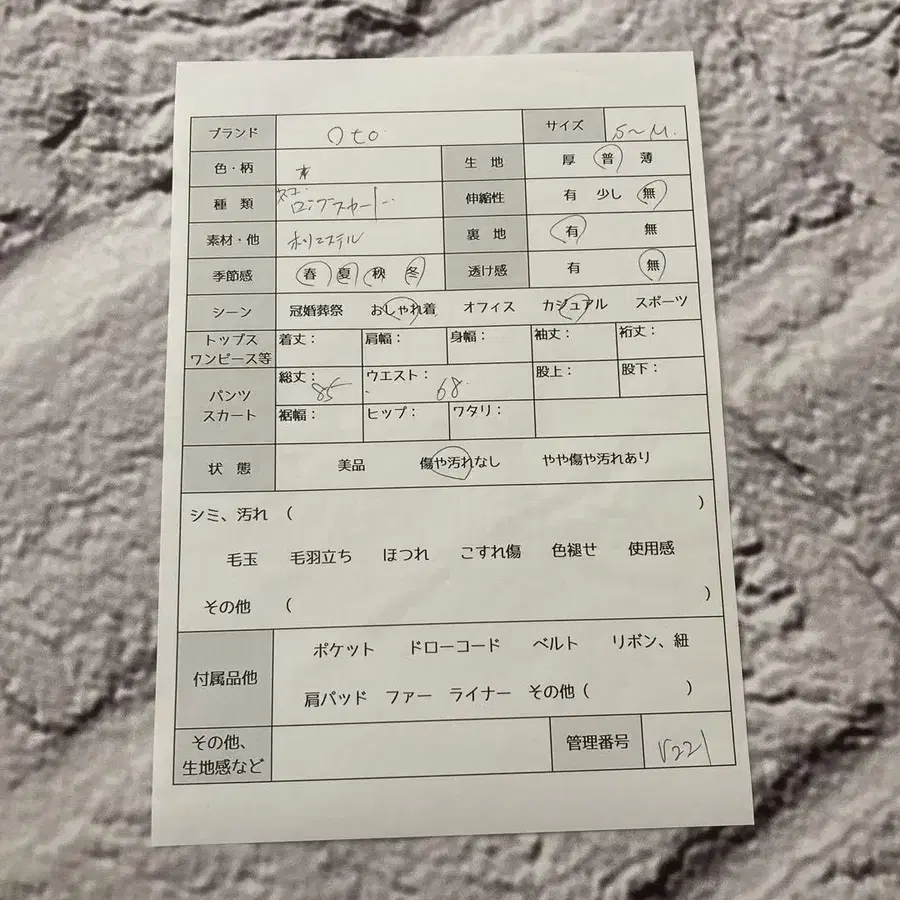 ブランド Oto サイズ S~M.
色・柄 生地 厚 普 薄
種類 ロングスカート 伸縮性 有 少し 無
素材・他 ポリエステル 裏地 有 無
季節感 春 夏 秋 冬 透け感 有 無
シーン 冠婚葬祭 おしゃれ着 オフィス カジュアル スポーツ
トップス ワンピース等 着丈: 肩幅: 身幅: 袖丈: 裄丈:
パンツ スカート 総丈: 85 ウエスト: 68 股上: 股下:
裾幅: ヒップ: ワタリ:
状態 美品 傷や汚れなし やや傷や汚れあり
シミ、汚れ ( )
毛玉 毛羽立ち ほつれ こすれ傷 色褪せ 使用感
その他 ( )
付属品他 ポケット ドローコード ベルト リボン、紐
肩パッド ファー ライナー その他 ( )
その他、生地感など 管理番号 V221